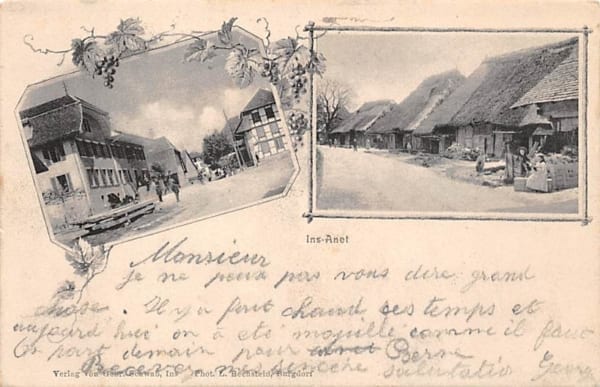 Ins-Anet
Monsieur
je ne peux pas vous dire grand
chose. Il y a fait chaud ces temps et
aujourd hui on a été mouillé comme il faut
On part demain pour Berne
Recevez salutatio Georg
Verlag von Geschw. Schwab, Ins Phot. L. Bechstein, Burgdorf